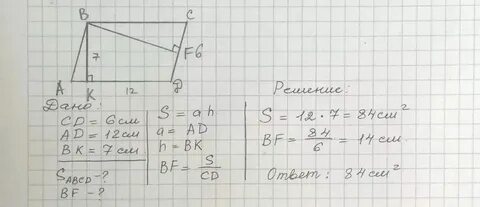 B C
7 F 6
A K 12 D
Дано:
CD = 6 см
AD = 12 см
BK = 7 см
S ABCD - ?
BF - ?
S = ah
a = AD
h = BK
BF = S/CD
Решение:
S = 12 · 7 = 84 см²
BF = 84/6 = 14 см.
Ответ: 84 см²